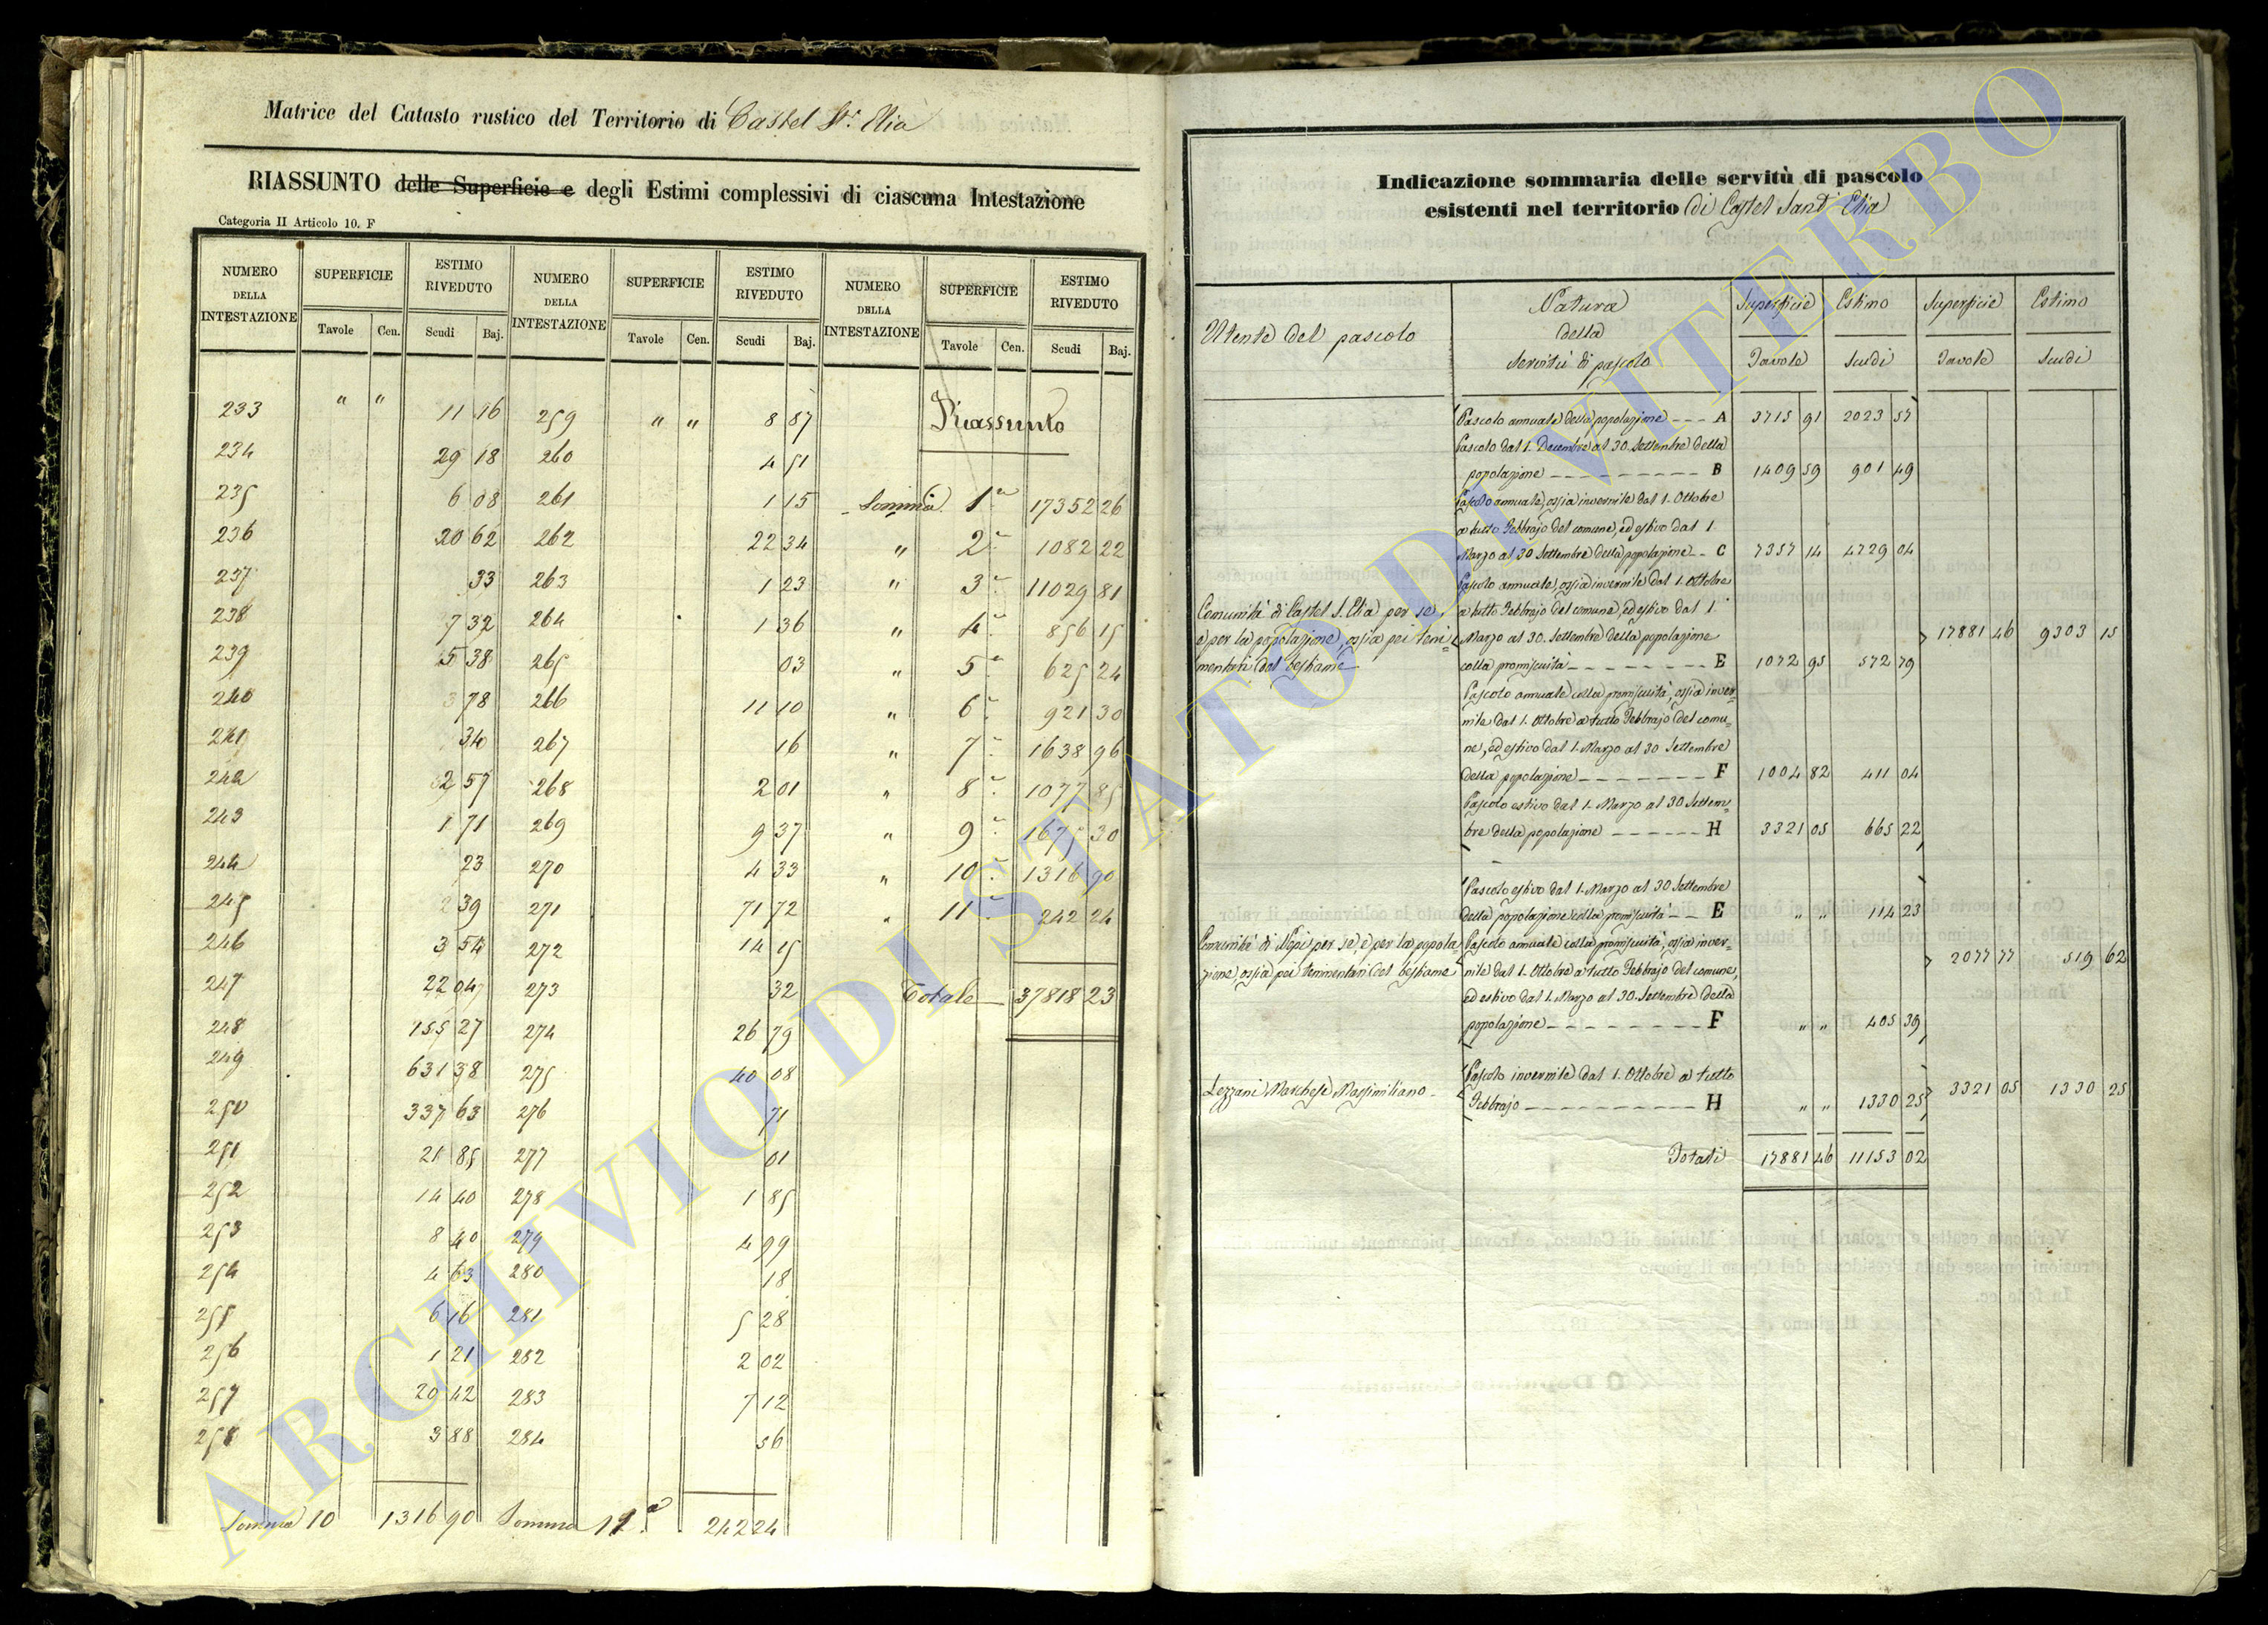 Matrice del Catasto rustico del Territorio di Castel St. Elia
RIASSUNTO delle Superficie e degli Estimi complessivi di ciascuna Intestazione
Categoria II Articolo 10. F
NUMERO DELLA INTESTAZIONE SUPERFICIE ESTIMO RIVEDUTO NUMERO DELLA INTESTAZIONE SUPERFICIE ESTIMO RIVEDUTO NUMERO DELLA INTESTAZIONE SUPERFICIE ESTIMO RIVEDUTO
Tavole Cen. Scudi Baj. Tavole Cen. Scudi Baj. Tavole Cen. Scudi Baj.
233 " " 11 16 259 " " 8 87 Riassunto
234 29 18 260 4 51
235 6 08 261 1 15 Somma 1a 17352 26
236 20 62 262 22 34 " 2a 1082 22
237 33 263 1 23 " 3a 11029 81
238 7 32 264 1 36 " 4a 856 15
239 5 38 265 03 " 5a 625 24
240 3 78 266 11 10 " 6a 921 30
241 34 267 16 " 7a 1638 96
242 2 57 268 2 01 " 8a 1077 85
243 1 71 269 9 37 " 9a 1675 30
244 23 270 4 33 " 10a 1316 90
245 2 39 271 71 72 " 11a 242 24
246 3 54 272 14 15
247 22 04 273 32 Totale 37818 23
248 155 27 274 26 79
249 631 38 275 40 08
250 337 63 276 71
251 21 85 277 01
252 14 40 278 1 85
253 8 40 279 4 99
254 4 63 280 18
255 6 16 281 5 28
256 1 21 282 2 02
257 20 42 283 7 12
258 3 88 284 56
Somma 10 1316 90 Somma 11a 242 24
Indicazione sommaria delle servitù di pascolo
esistenti nel territorio di Castel Sant Elia
Utente del pascolo Natura della Servitù di pascolo Superficie Estimo Superficie Estimo
Tavole Scudi Tavole Scudi
Pascolo annuale della popolazione A 3715 91 2023 57
Pascolo dal 1. Decembre al 30. Settembre della
popolazione B 1409 59 901 49
Pascolo annuale, ossia invernile dal 1. Ottobre
a tutto Febbrajo del comune, ed estivo dal 1.
Marzo al 30 Settembre della popolazione C 7357 14 4729 04
Pascolo annuale, ossia invernile dal 1. Ottobre
Comunità di Castel S. Elia per se, a tutto Febbrajo del comune, ed estivo dal 1.
e per la popolazione, ossia pei teni= Marzo al 30. Settembre della popolazione 17881 46 9303 15
mentari del bestiame colla promiscuità E 1072 95 572 79
Pascolo annuale colla promiscuità, ossia inver=
nile dal 1. Ottobre a tutto Febbrajo del comu=
ne, ed estivo dal 1. Marzo al 30 Settembre
della popolazione F 1004 82 411 04
Pascolo estivo dal 1. Marzo al 30 Settem=
bre della popolazione H 3321 05 665 22
Pascolo estivo dal 1. Marzo al 30 Settembre
della popolazione colla promiscuità E " " 114 23
Comunità di Nepi per se, e per la popola= Pascolo annuale colla promiscuità, ossia inver=
zione, ossia pei tenimentari del bestiame nile dal 1. Ottobre a tutto Febbrajo del comune, 2077 77 519 62
ed estivo dal 1. Marzo al 30. Settembre della
popolazione F " " 405 39
Pascolo invernile dal 1. Ottobre a tutto
Lezzani Marchese Massimiliano Febbrajo H " " 1330 25 3321 05 1330 25
Totali 17881 46 11153 02
ARCHIVIO DI STATO DI VITERBO